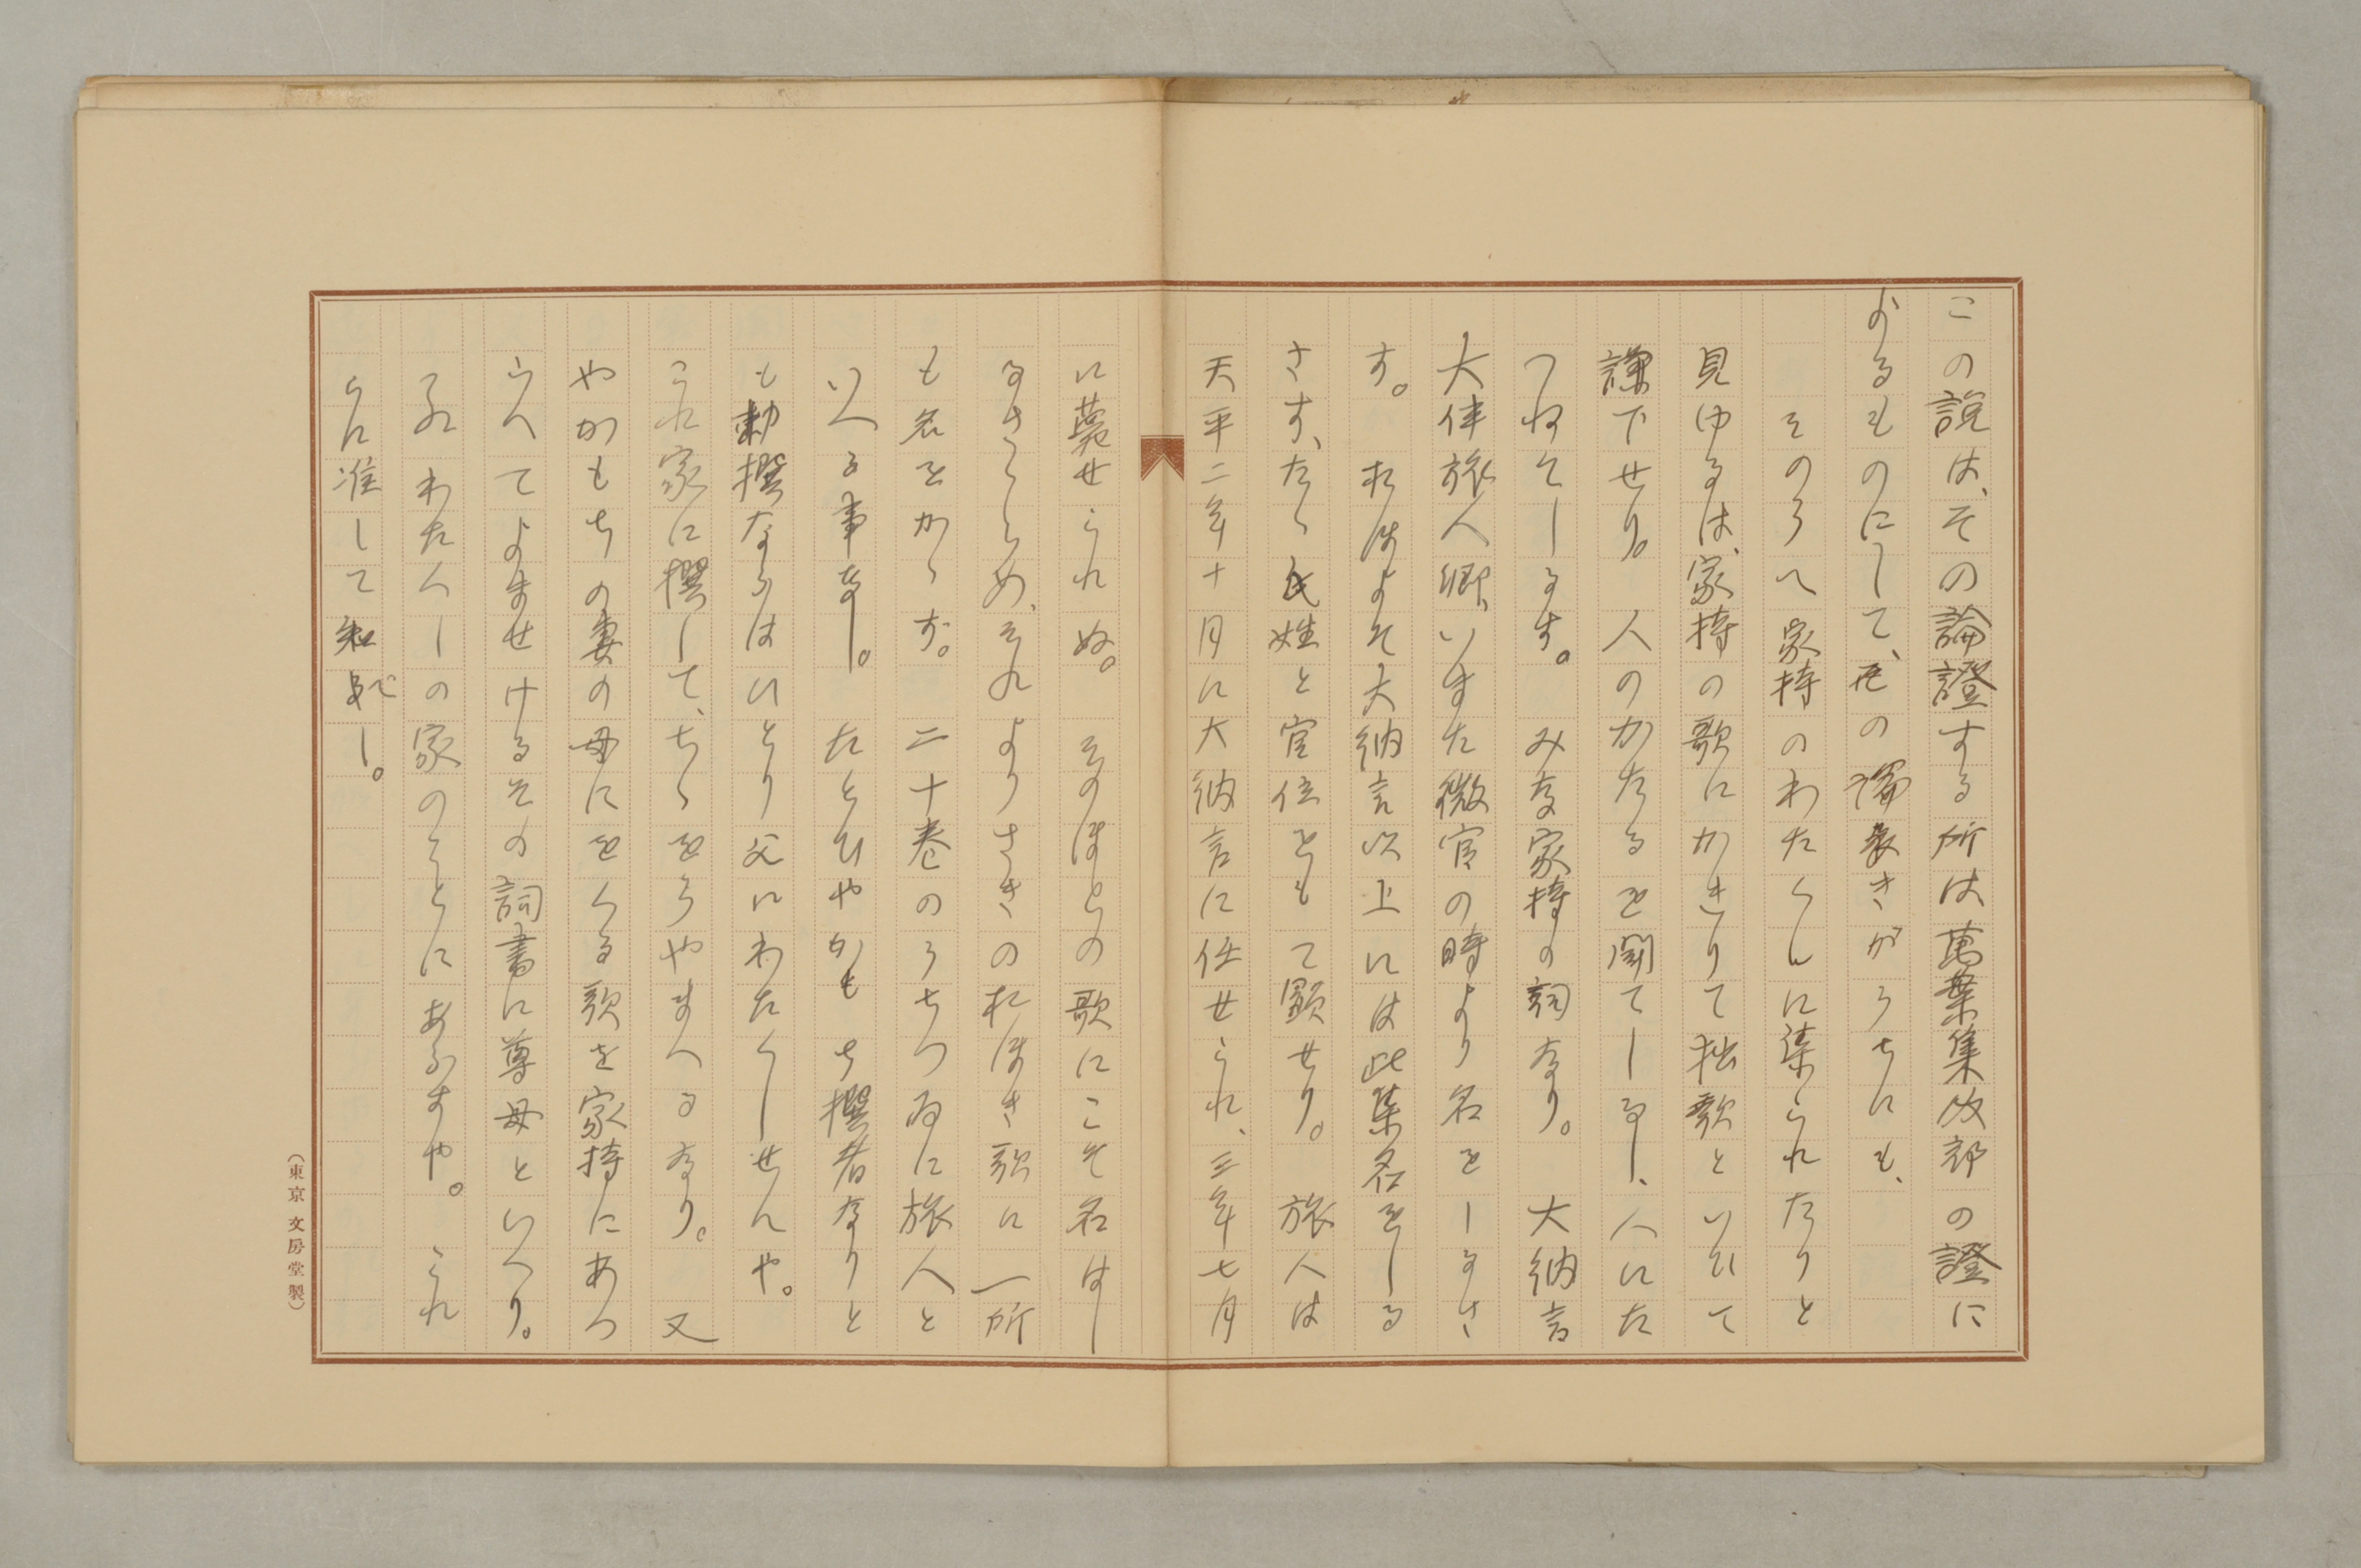 この説は、その論證する所は萬葉集内部の證に
よるものにして、その論
そのうへ家持のわたくしに集られたりと
見ゆるは、家持の歌にかきりて拙歌といひて
謙下せり。人のかたるを聞てしるし、人にた
つねてしるす。みな家持の詞なり。大納言
大伴旅人卿いまた微官の時より名をしるさ
す。おほよそ大納言以上には此集名をしる
さす、たゝ氏姓と官位とをもて顕せり。旅人は
天平二年十月に大納言に任せられ、三年七月
に薨せられぬ。そのほとの歌にこそ名はし
るさゝらめ、それよりさきのおほき歌に一所
も名をかゝず。二十巻のうちつゐに旅人と
いへる事なし。たとひやかもち撰者なりと
も勅撰ならはひとり父にわたくしせんや。
これ家に撰して、ちゝをうやまへるなり。又
やかもちの妻の母にをくる歌を家持にあつ
らへてよませけるその詞書に尊母といへり。
これわたくしの家のことにあらすや。これ
らに准して知べし。
(東京 文房堂製)